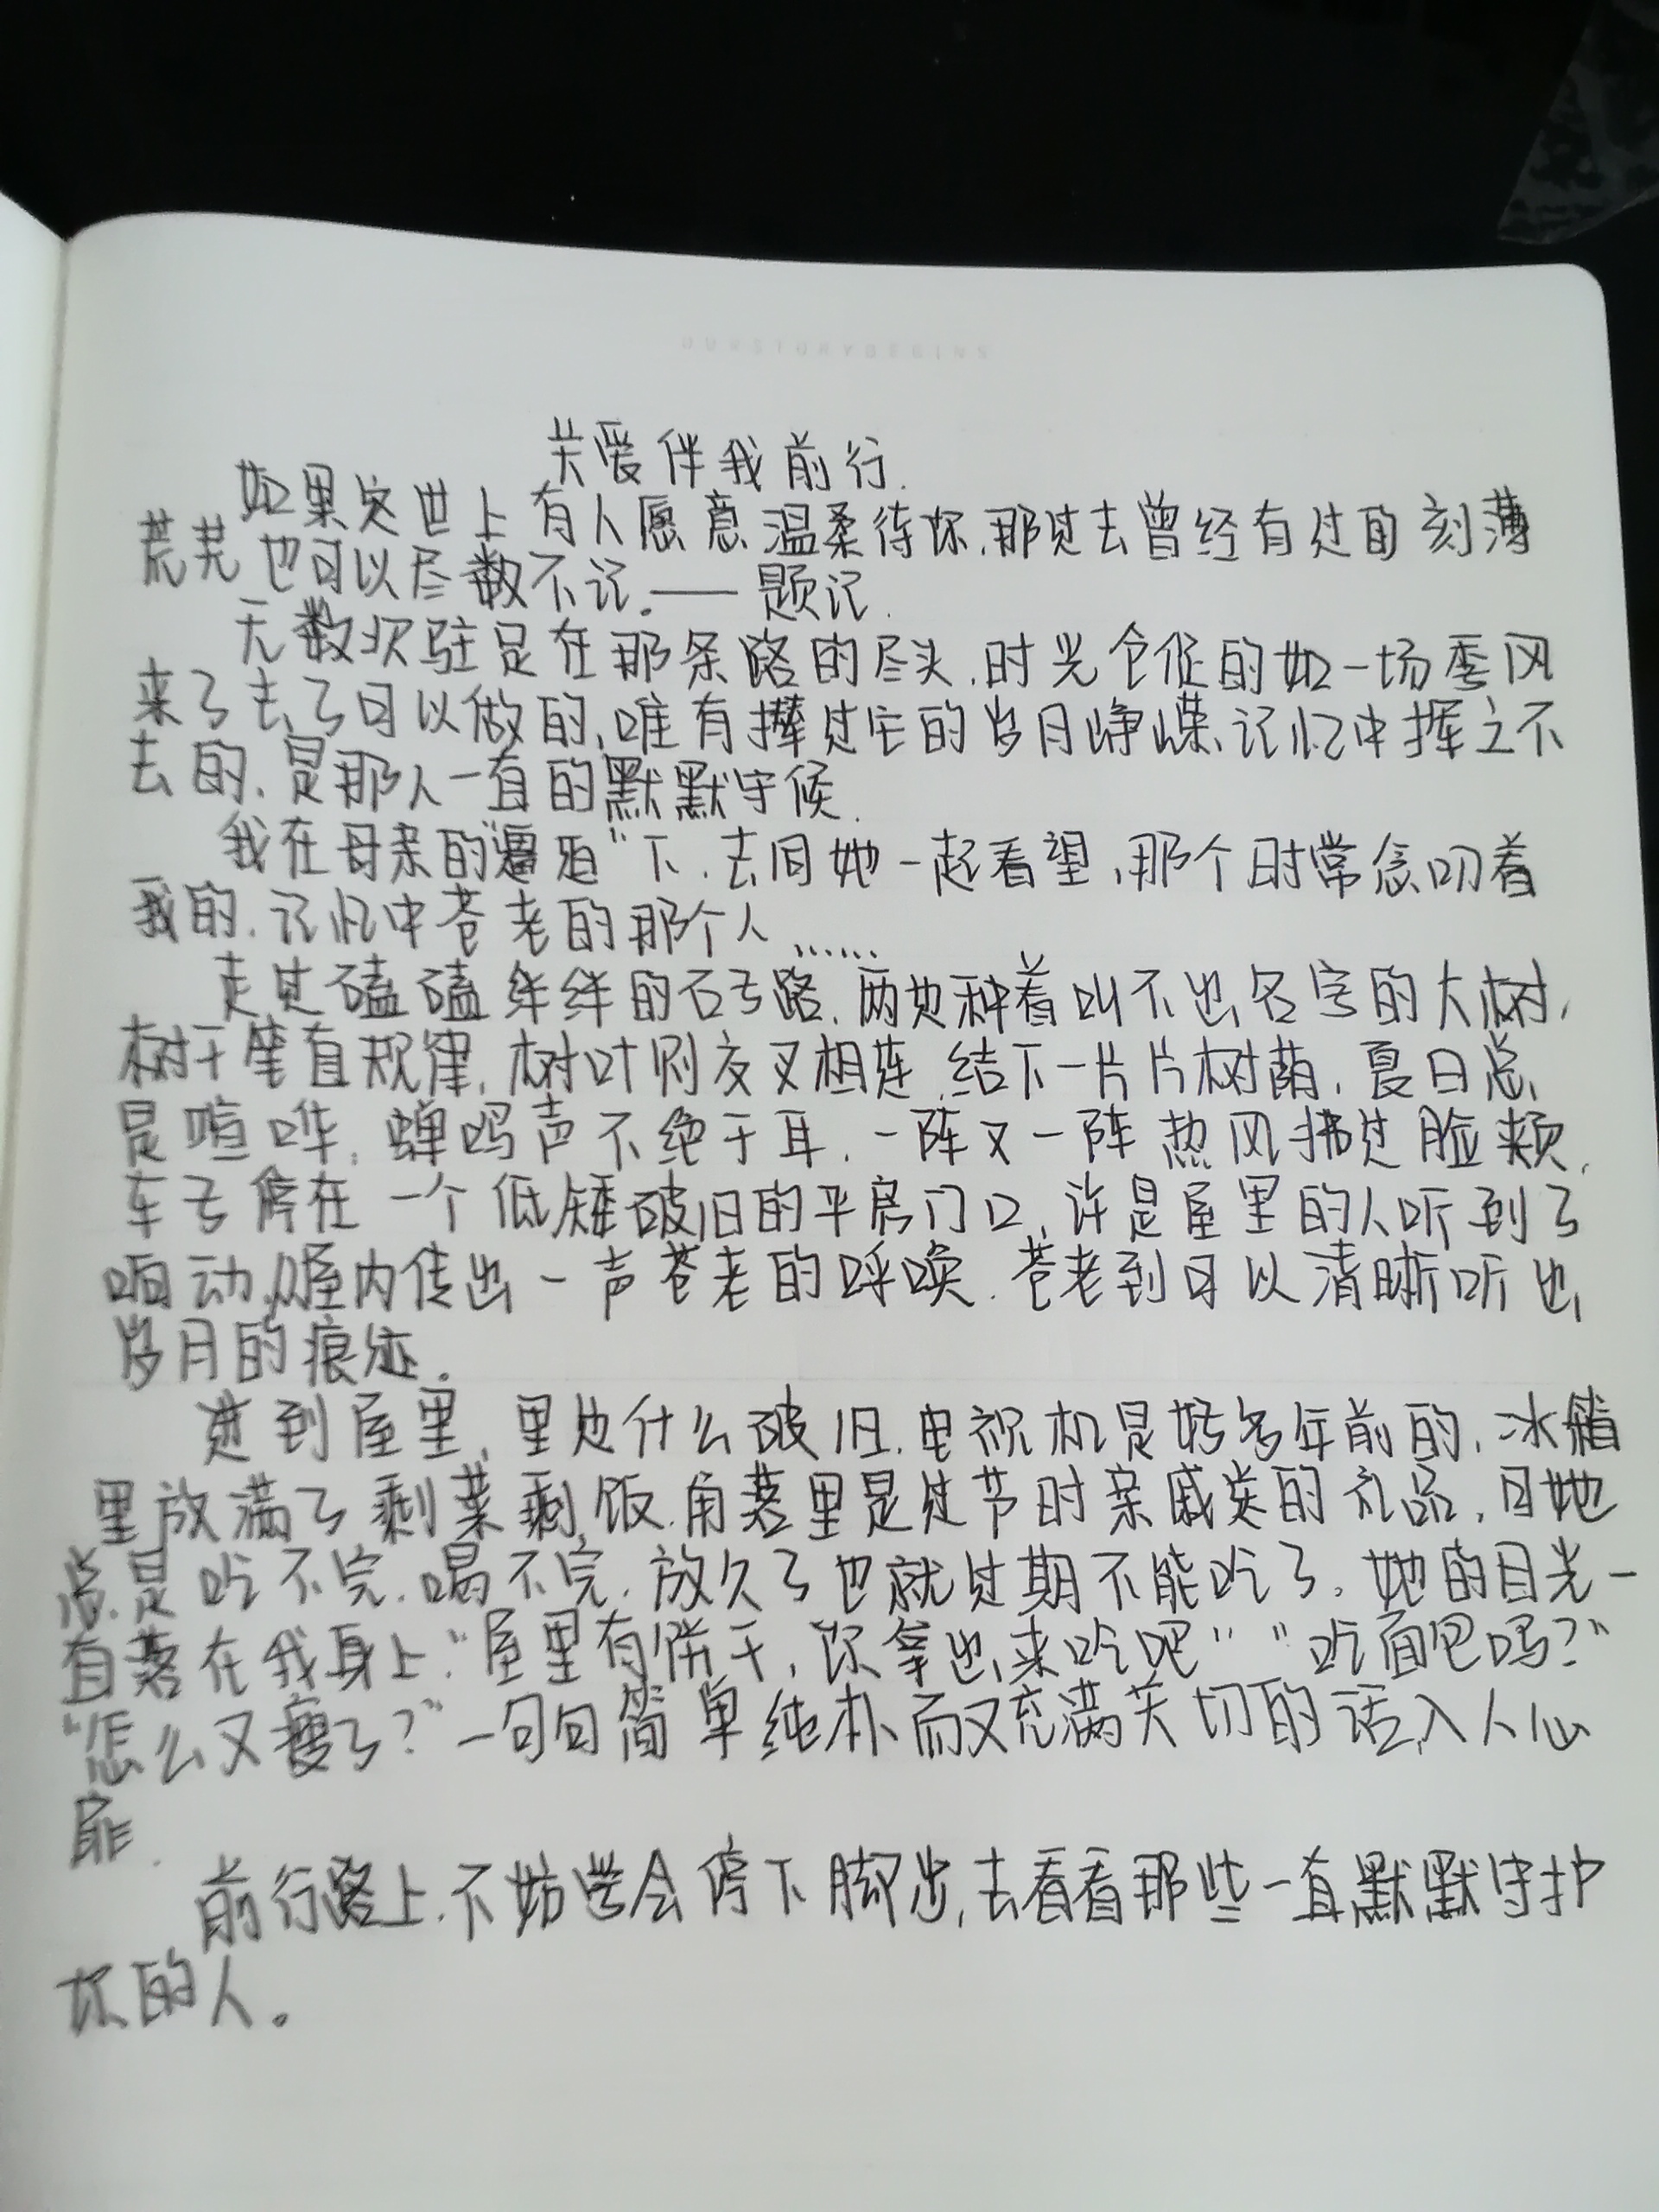 关爱伴我前行.
如果这世上有人愿意温柔待你,那过去曾经有过的刻薄
荒芜也可以尽数不记。——题记.
无数次驻足在那条路的尽头,时光仓促的如一场季风
来了去了可以做的,唯有攥过往的岁月峥嵘,记忆中挥之不
去的,是那人一直的默默守候.
我在母亲的"逼迫"下,去同她一起看望,那个时常念叨着
我的,记忆中苍老的那个人……
走过磕磕绊绊的石子路,两边种着叫不出名字的大树,
树干笔直规律,树叶则交叉相连,结下一片片树荫,夏日总
是喧哗,蝉鸣声不绝于耳,一阵又一阵热风拂过脸颊,
车子停在一个低矮破旧的平房门口,许是屋里的人听到了
响动,从屋内传出一声苍老的呼唤,苍老到可以清晰听出
岁月的痕迹.
进到屋里,里边什么破旧,电视机是好多年前的,冰箱
里放满了剩菜剩饭,角落里是过节时亲戚送的礼品,因她
总是吃不完,喝不完,放久了也就过期不能吃了,她的目光一
直落在我身上,"屋里有饼干,你拿出来吃吧""吃面包吗?"
"怎么又瘦了?"一句句简单纯朴而又充满关切的话,入人心
扉.
前行路上,不妨学会停下脚步,去看看那些一直默默守护
你的人。